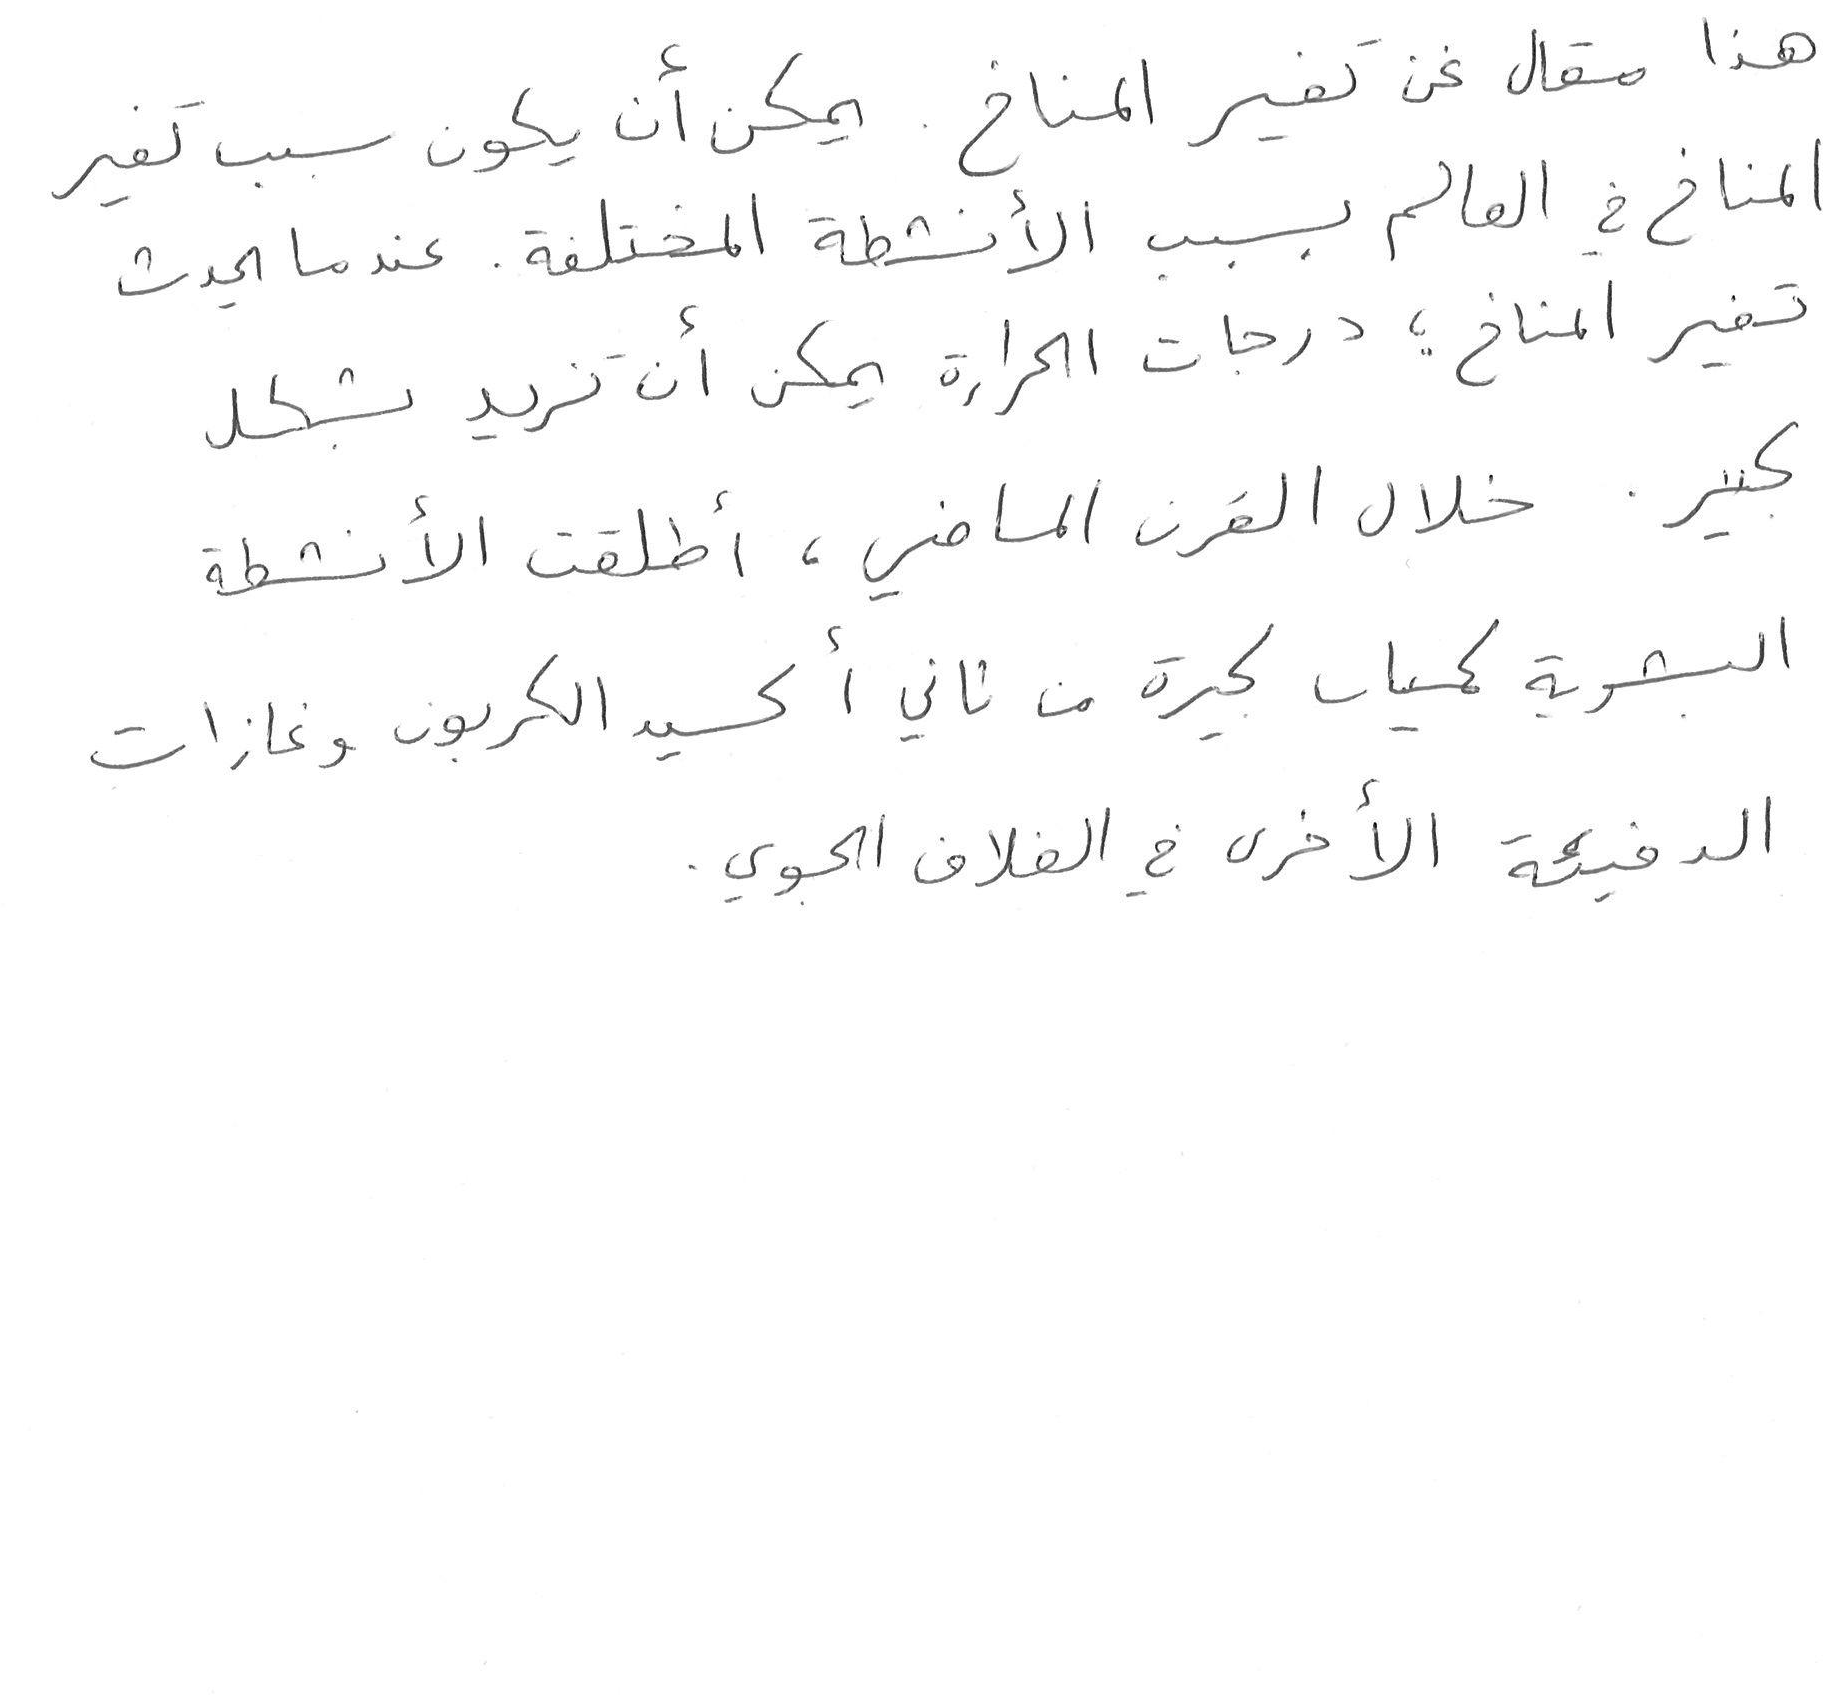 هذا مقال عن تغير المناخ. يمكن أن يكون سبب تغير
المناخ في العالم بسبب الأنشطة المختلفة. عندما يحدث
تغير المناخ؛ درجات الحرارة يمكن أن تزيد بشكل
كبير. خلال القرن الماضي، أطلقت الأنشطة
البشرية كميات كبيرة من ثاني أكسيد الكربون وغازات
الدفيئة الأخرى في الغلاف الجوي.